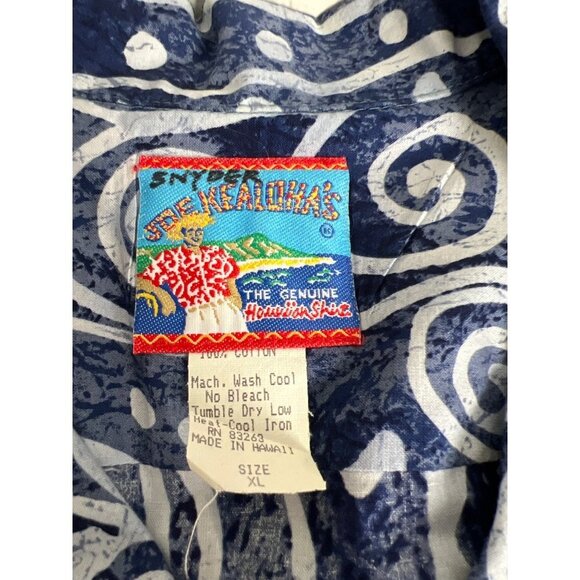 SNYDER
JOE KEALOHA'S
®
THE GENUINE
Hawaiian Shirt
100% COTTON
Mach. Wash Cool
No Bleach
Tumble Dry Low
Heat-Cool Iron
RN 83263
MADE IN HAWAII
SIZE
XL